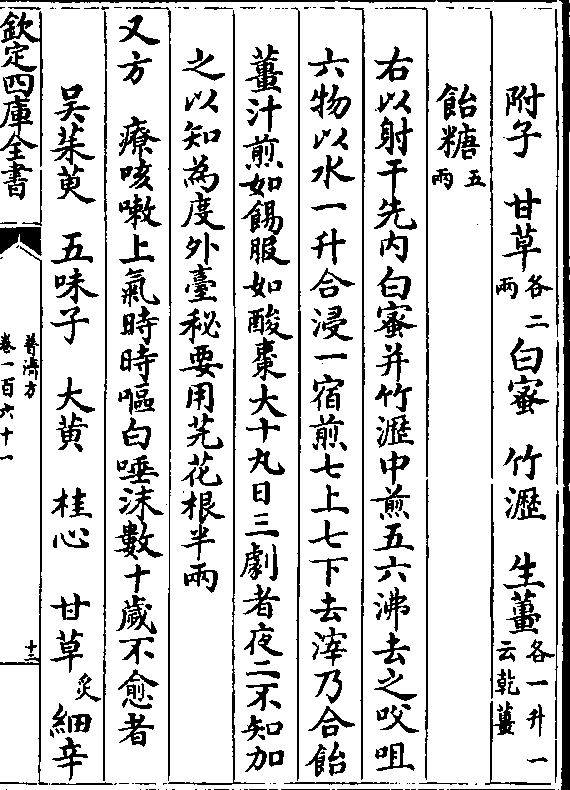 附子　甘草各二兩　白蜜　竹瀝　生薑各一升一云乾薑
飴糖五兩
右以射干先内白蜜并竹瀝中煎五六沸去之㕮咀
六物以水一升合浸一宿煎七上七下去滓乃合飴
薑汁煎如餳服如酸棗大十九日三劇者夜二不知加
之以知為度外臺秘要用芫花根半兩
又方　療咳嗽上氣時時嘔白唾沫數十歲不愈者
吳茱萸　五味子　大黄　桂心　甘草炙　細辛
欽定四庫全書
普濟方
卷一百六十一
十三